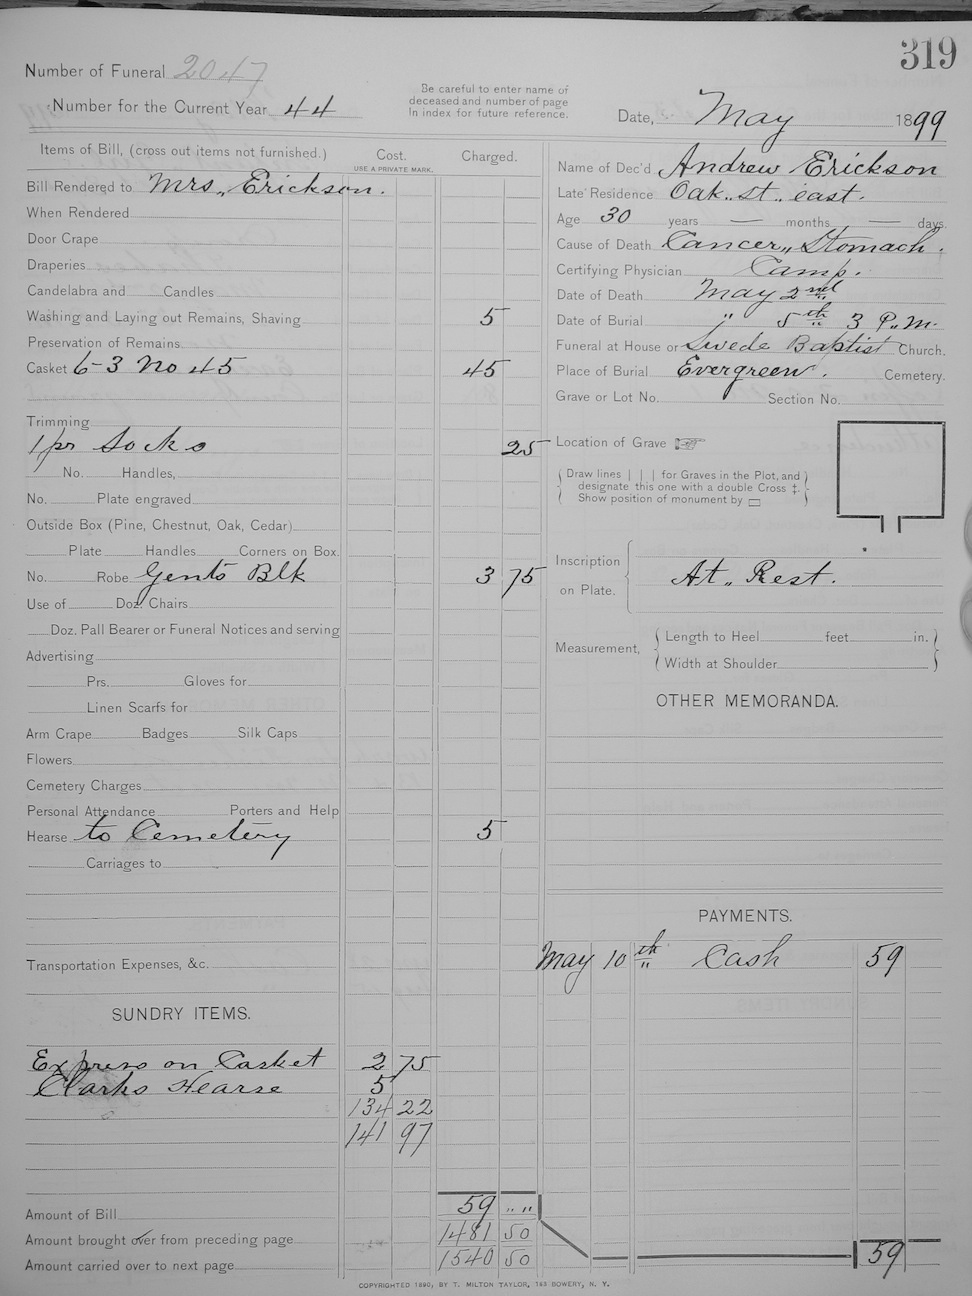 319
Number of Funeral 2047
Number for the Current Year 44
Be careful to enter name of
deceased and number of page
In index for future reference.
Date, May 1899
Items of Bill, (cross out items not furnished.) Cost. Charged.
USE A PRIVATE MARK.
Bill Rendered to Mrs,, Erickson.
When Rendered
Door Crape
Draperies
Candelabra and Candles
Washing and Laying out Remains, Shaving 5
Preservation of Remains
Casket 6-3 No 45 45
Trimming
1 pr Socks 25
No. Handles,
No. Plate engraved
Outside Box (Pine, Chestnut, Oak, Cedar)
Plate Handles Corners on Box.
No. Robe Gents Blk 3 75
Use of Doz. Chairs
Doz. Pall Bearer or Funeral Notices and serving
Advertising
Prs. Gloves for
Linen Scarfs for
Arm Crape Badges Silk Caps
Flowers
Cemetery Charges
Personal Attendance Porters and Help
Hearse to Cemetery 5
Carriages to
Transportation Expenses, &c.
SUNDRY ITEMS.
Express on Casket 2 75
Clarks Hearse 5
134 22
141 97
Amount of Bill 59 ,, ,,
Amount brought over from preceding page 1481 50
Amount carried over to next page 1540 50
Name of Dec'd Andrew Erickson
Late Residence Oak,, St,, east.
Age 30 years — months — days.
Cause of Death Cancer,, Stomach.
Certifying Physician Camp.
Date of Death May 2nd
Date of Burial " 5th 3 P,,M.
Funeral at House or Swede Baptist Church.
Place of Burial Evergreen. Cemetery.
Grave or Lot No. Section No.
Location of Grave
Draw lines | | | for Graves in the Plot, and
designate this one with a double Cross ‡.
Show position of monument by ▭
Inscription
on Plate.
At,, Rest.
Measurement,
Length to Heel feet in.
Width at Shoulder
OTHER MEMORANDA.
PAYMENTS.
May 10th Cash 59
59
COPYRIGHTED 1890, BY T. MILTON TAYLOR, 163 BOWERY, N. Y.